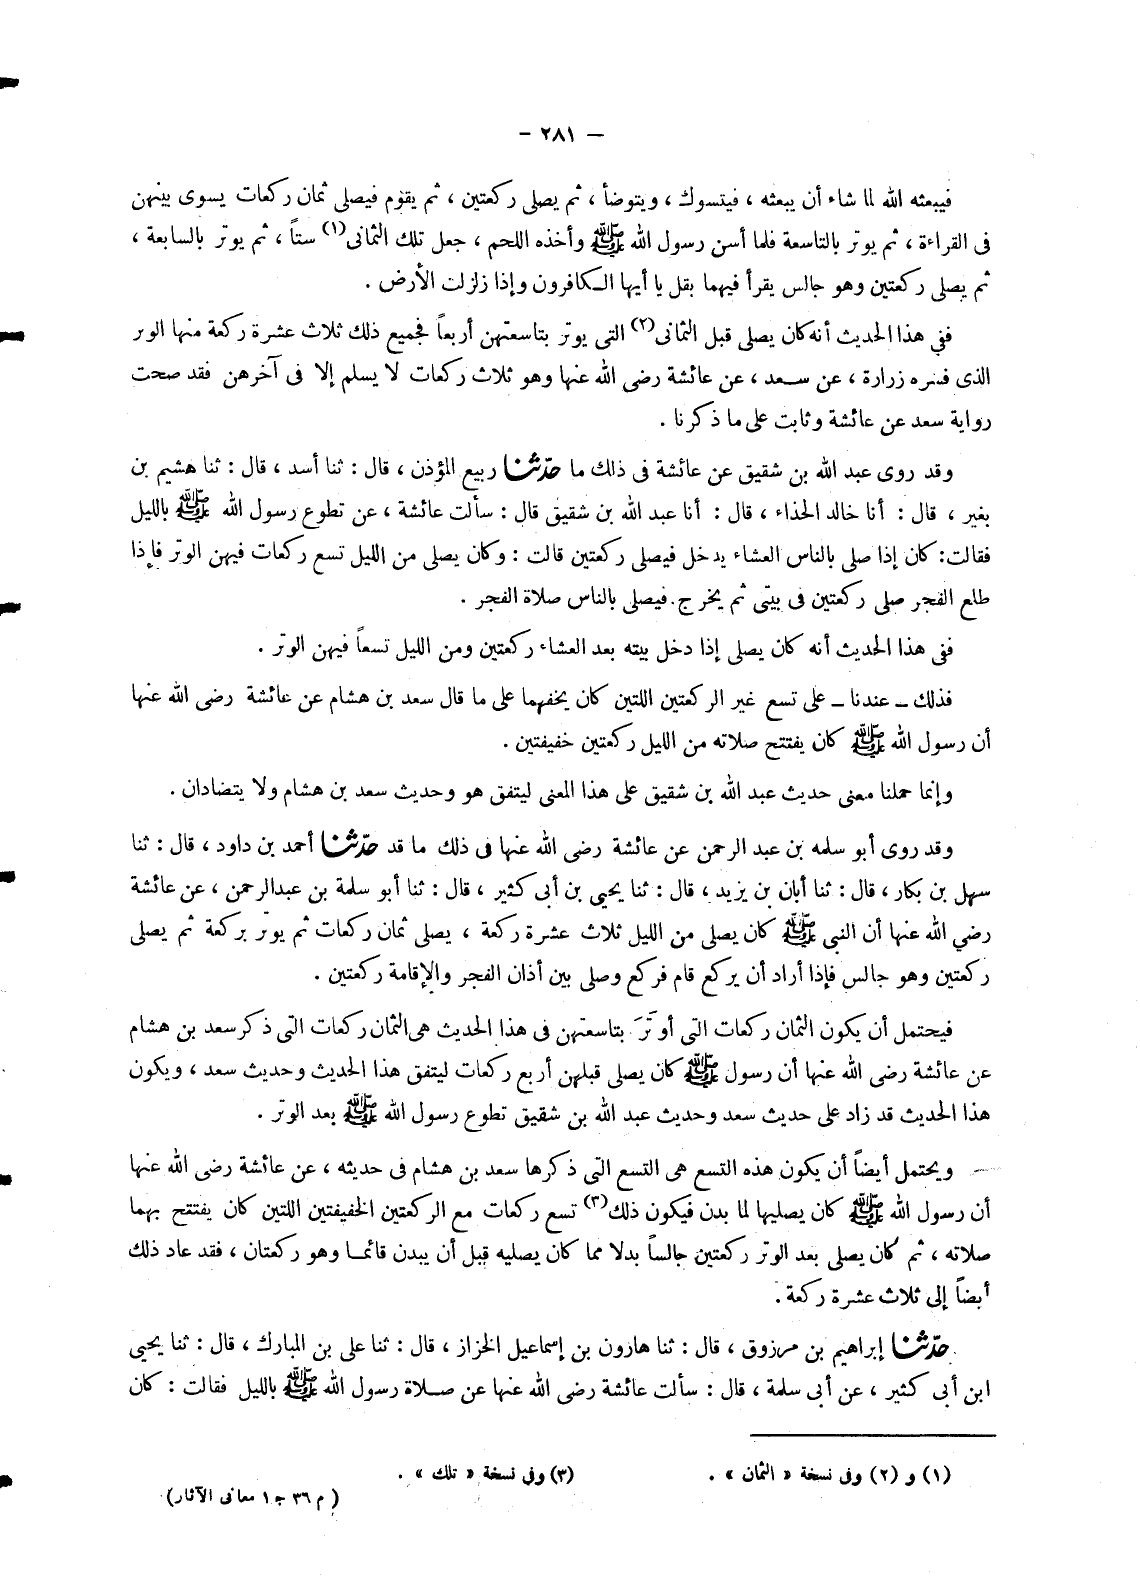 — ٢٨١ —
فيبعثه الله لما شاء أن يبعثه ، فيتسوك ، ويتوضأ ، ثم يصلى ركعتين ، ثم يقوم فيصلى ثمان ركعات يسوى بينهن
فى القراءة ، ثم يوتر بالتاسعة فلما أسن رسول الله ﷺ وأخذه اللحم ، جعل تلك الثمانى(١) ستاً ، ثم يوتر بالسابعة ،
ثم يصلى ركعتين وهو جالس يقرأ فيهما بقل يا أيها الكافرون وإذا زلزلت الأرض .
ففى هذا الحديث أنه كان يصلى قبل الثمانى(٢) التى يوتر بتاسعتهن أربعاً فجميع ذلك ثلاث عشرة ركعة منها الوتر
الذى فسره زرارة ، عن سعد ، عن عائشة رضى الله عنها وهو ثلاث ركعات لا يسلم إلا فى آخرهن فقد صحت
رواية سعد عن عائشة وثابت على ما ذكرنا .
وقد روى عبد الله بن شقيق عن عائشة فى ذلك ما حدّثنا ربيع المؤذن ، قال : ثنا أسد ، قال : ثنا هشيم بن
بغير ، قال : أنا خالد الحذاء ، قال : أنا عبد الله بن شقيق قال : سألت عائشة ، عن تطوع رسول الله ﷺ بالليل
فقالت: كان إذا صلى بالناس العشاء يدخل فيصلى ركعتين قالت : وكان يصلى من الليل تسع ركعات فيهن الوتر فإذا
طلع الفجر صلى ركعتين فى بيتى ثم يخرج فيصلى بالناس صلاة الفجر .
ففى هذا الحديث أنه كان يصلى إذا دخل بيته بعد العشاء ركعتين ومن الليل تسعاً فيهن الوتر .
فذلك ــ عندنا ــ على تسع غير الركعتين اللتين كان يخفهما على ما قال سعد بن هشام عن عائشة رضى الله عنها
أن رسول الله ﷺ كان يفتتح صلاته من الليل ركعتين خفيفتين .
وإنما حملنا معنى حديث عبد الله بن شقيق على هذا المعنى ليتفق هو وحديث سعد بن هشام ولا يتضادان .
وقد روى أبو سلمه بن عبد الرحمن عن عائشة رضى الله عنها فى ذلك ما قد حدّثنا أحمد بن داود ، قال : ثنا
سهل بن بكار ، قال : ثنا أبان بن يزيد ، قال : ثنا يحيى بن أبى كثير ، قال : ثنا أبو سلمة بن عبدالرحمن ، عن عائشة
رضي الله عنها أن النبى ﷺ كان يصلى من الليل ثلاث عشرة ركعة ، يصلى ثمان ركعات ثم يوتر بركعة ثم يصلى
ركعتين وهو جالس فإذا أراد أن يركع قام فركع وصلى بين أذان الفجر والإقامة ركعتين .
فيحتمل أن يكون الثمان ركعات التى أوتَرَ بتاسعتهن فى هذا الحديث هى الثمان ركعات التى ذكر سعد بن هشام
عن عائشة رضى الله عنها أن رسول ﷺ كان يصلى قبلهن أربع ركعات ليتفق هذا الحديث وحديث سعد ، ويكون
هذا الحديث قد زاد على حديث سعد وحديث عبد الله بن شقيق تطوع رسول الله ﷺ بعد الوتر .
ويحتمل أيضاً أن يكون هذه التسع هى التسع التى ذكرها سعد بن هشام فى حديثه ، عن عائشة رضى الله عنها
أن رسول الله ﷺ كان يصليها لما بدن فيكون ذلك(٣) تسع ركعات مع الركعتين الخفيفتين اللتين كان يفتتح بهما
صلاته ، ثم كان يصلى بعد الوتر ركعتين جالساً بدلا مما كان يصليه قبل أن يبدن قائما وهو ركعتان ، فقد عاد ذلك
أيضاً إلى ثلاث عشرة ركعة .
حدّثنا إبراهيم بن مرزوق ، قال : ثنا هارون بن إسماعيل الخزاز ، قال : ثنا على بن المبارك ، قال : ثنا يحيى
ابن أبى كثير ، عن أبى سلمة ، قال : سألت عائشة رضى الله عنها عن صلاة رسول الله ﷺ بالليل فقالت : كان
(١) و (٢) وفى نسخة « الثمان » . (٣) وفى نسخة « تلك » .
( م ٣٦ ج ١ معانى الآثار )